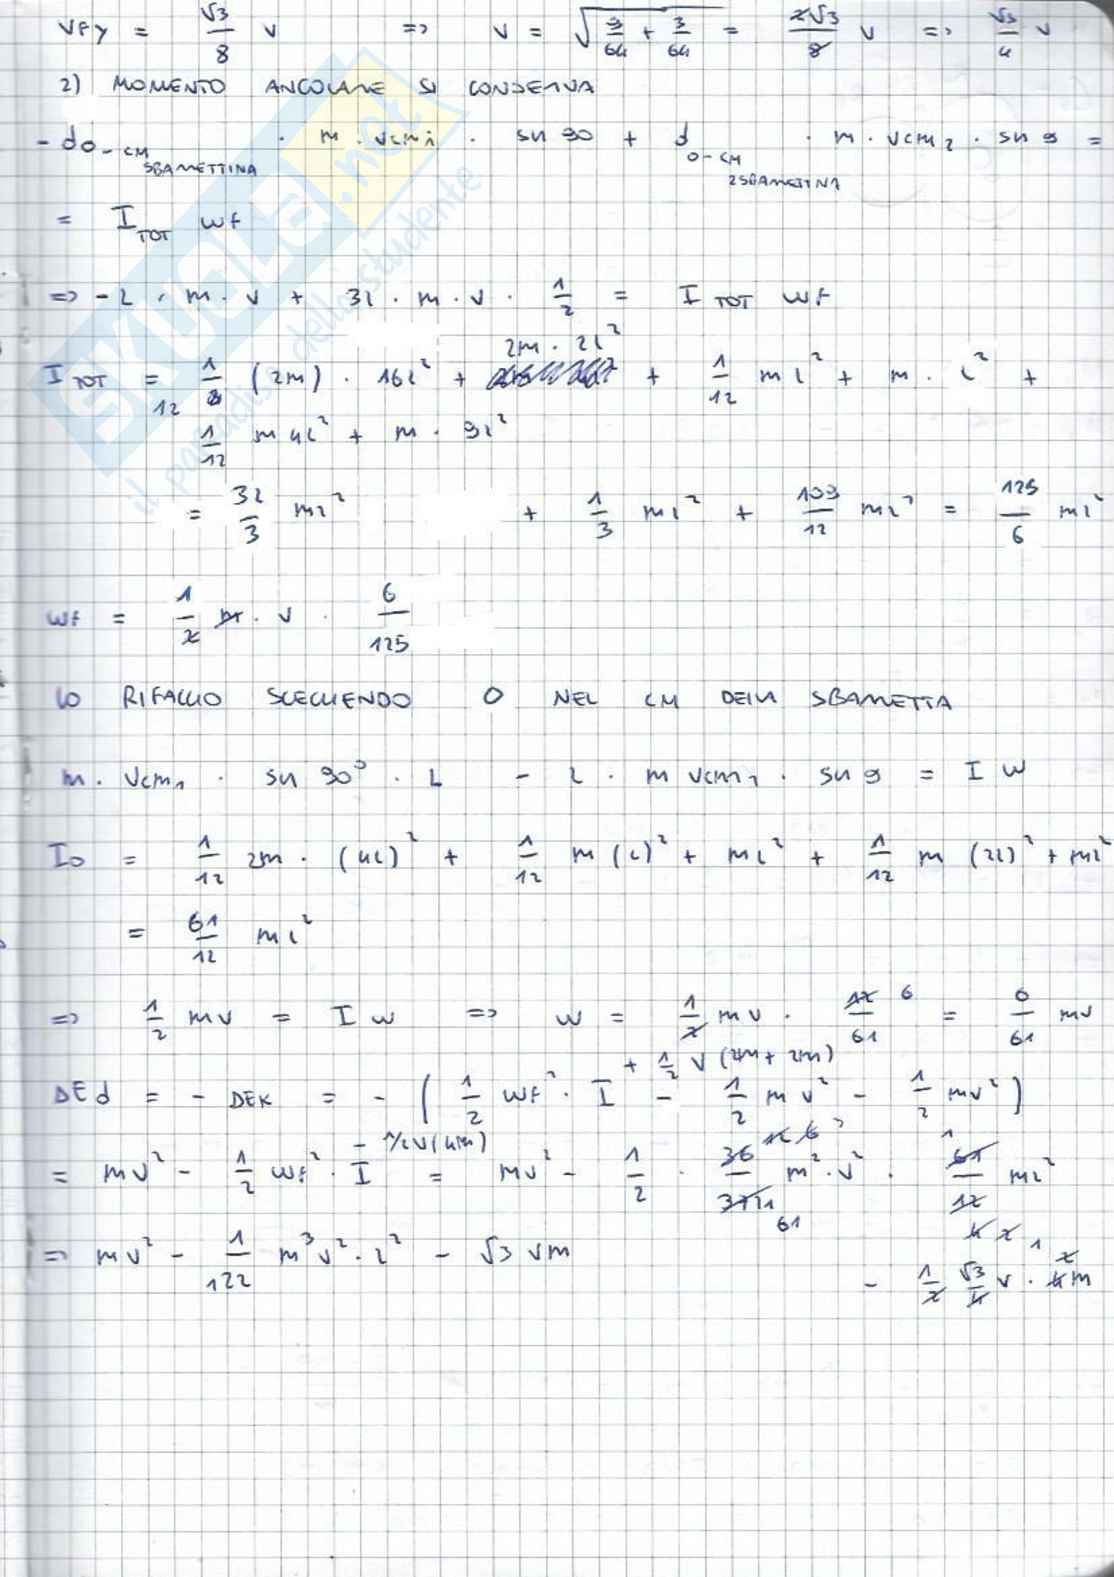 VFY = √3/8 V => V = √(3/64 + 3/64) = 2√3/8 V => √3/4 V
2) MOMENTO ANGOLARE SI CONSERVA
- d O-CM SBARRETTINA · m · Vcm1 · sen 90 + d O-CM 2SBARRETTINA · m · Vcm2 · sen θ =
= I TOT wf
=> - L · m · v + 3L · m · v · 1/2 = I TOT WF
2m · 2L²
I TOT = 1/12 (2m) · 16L² + + 1/12 mL² + m · L² +
1/12 m 4L² + m · 9L²
= 32/3 mL² + 1/3 mL² + 109/12 mL² = 125/6 mL²
WF = 1/2 m · v · 6/125
LO RIFACCIO SCEGLIENDO O NEL CM DELLA SBARRETTA
m · Vcm1 · sen 90° · L - L · m Vcm2 · sen θ = I W
IO = 1/12 2m · (4L)² + 1/12 m (L)² + mL² + 1/12 m (2L)² + mL²
= 61/12 mL²
=> 1/2 mv = I w => w = 1/2 mv · 12/61 6 = 6/61 mv
+ 1/2 V (2m + 2m)
DEd = - DEK = - ( 1/2 WF² · I - 1/2 mv² - 1/2 mv² )
- 1/2 V (4m)
= mv² - 1/2 WF² · I = mv² - 1/2 · 36/3721 m² · v² · 61/12 mL²
61
=> mv² - 1/122 m³v² · L² - √3 Vm
- 1/2 √3/4 v · 4m